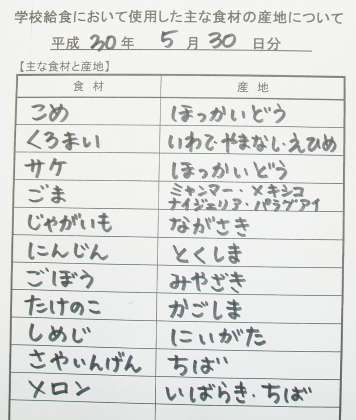 学校給食において使用した主な食材の産地について
平成 30 年 5 月 30 日分
【主な食材と産地】
食材 産地
こめ ほっかいどう
くろまい いわて・やまなし・えひめ
サケ ほっかいどう
ごま ミャンマー・メキシコ
ナイジェリア・パラグアイ
じゃがいも ながさき
にんじん とくしま
ごぼう みやざき
たけのこ かごしま
しめじ にいがた
さやいんげん ちば
メロン いばらき・ちば